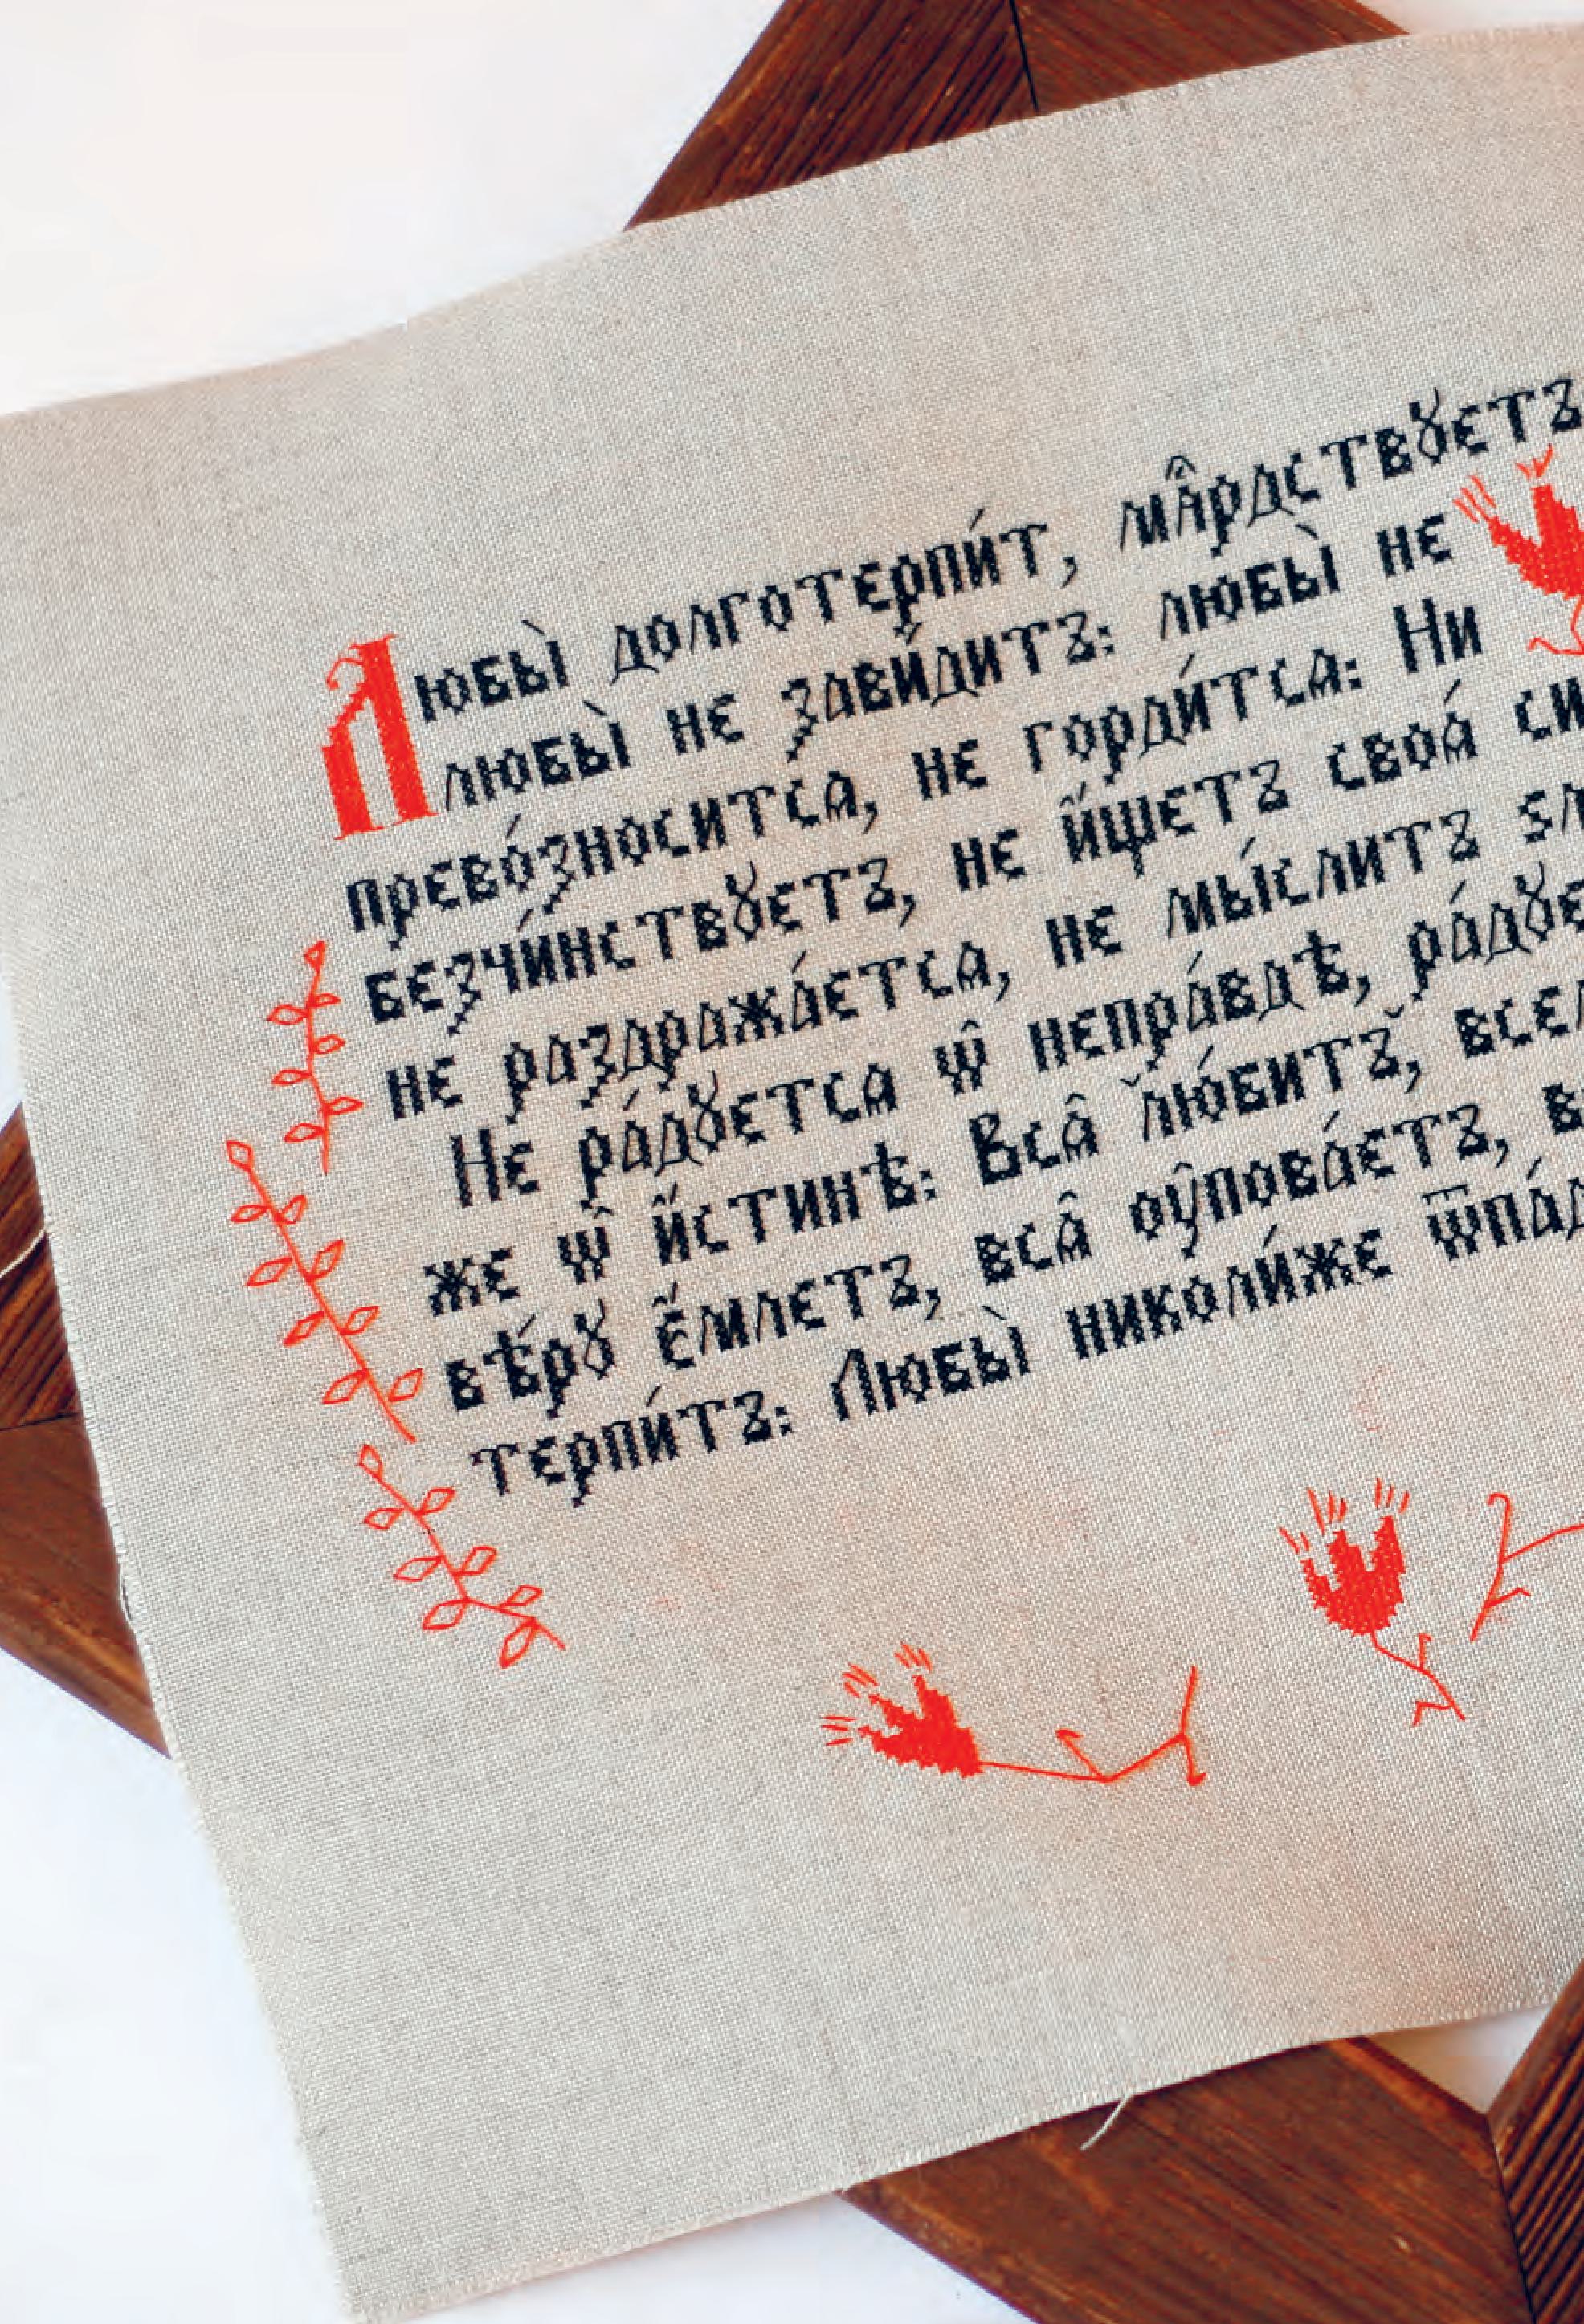 Любы̀ долготерпи́т, млⷭ҇рдствꙋетъ
любы̀ не зави́дитъ: любы̀ не
прево́зноситсѧ, не горди́тсѧ: Ни
безчи́нствꙋетъ, не и҆́щетъ своѧ́
не раздража́етсѧ, не мы́слитъ
Не ра́дꙋетсѧ ѡ҆ непра́вдѣ,
же ѡ҆ и҆́стинѣ: Всѧ̑ лю́битъ,
вѣ́рꙋ є҆́млетъ, всѧ̑ оу҆пова́етъ,
терпи́тъ: Любы̀ николи́же